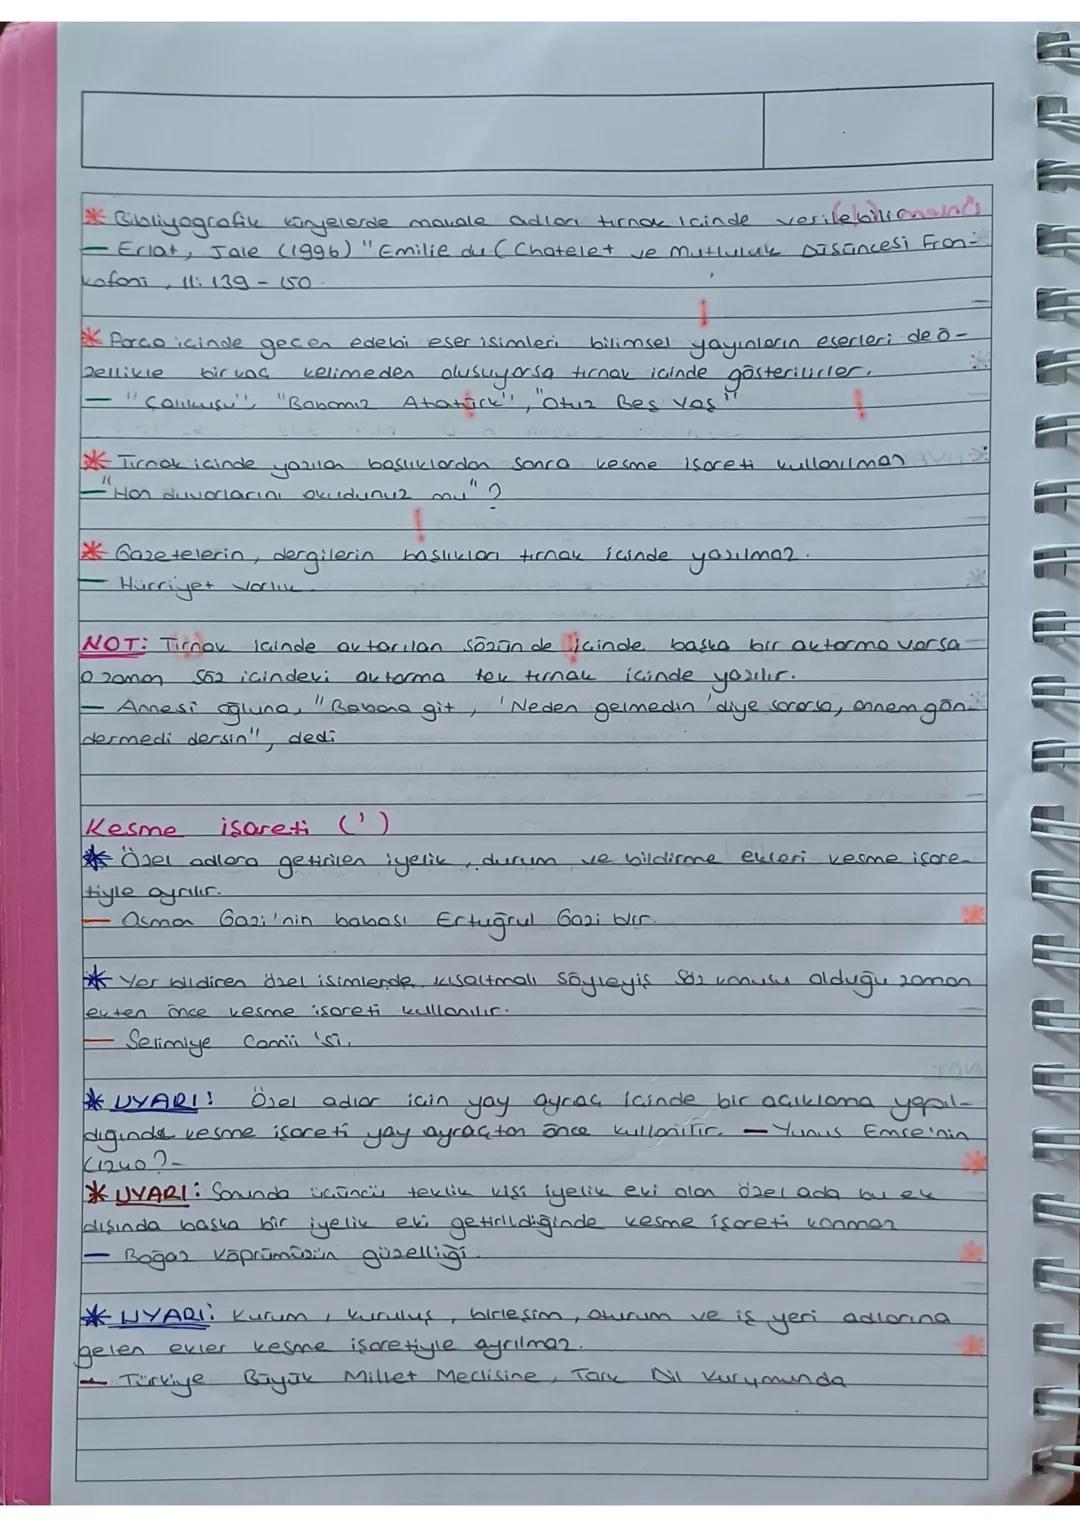 * Bibliyografik künyelerde makale adları tırnak içinde verilebilir
— Erlat, Jale (1996) "Emilie du (Chatelet ve Mutluluk Düşüncesi Fran-
kofoni, 11: 139 - 150.
* Parça içinde geçen edebi eser isimleri bilimsel yayınların eserleri de ö-
zellikle birkaç kelimeden oluşuyorsa tırnak içinde gösterilirler.
— "Çalıkuşu", "Babamız Atatürk", "Otuz Beş Yaş"
* Tırnak içinde yazılan başlıklardan sonra kesme işareti kullanılmaz
— "Han duvarlarını okudunuz mu" ?
* Gazetelerin, dergilerin başlıkları tırnak içinde yazılmaz.
— Hürriyet Varlık.
NOT: Tırnak içinde aktarılan sözün de içinde başka bir aktarma varsa
o zaman söz içindeki aktarma tek tırnak içinde yazılır.
— Annesi oğluna, "Babana git, 'Neden gelmedin 'diye sorarsa, annem gön-
dermedi dersin", dedi
Kesme işareti (')
* Özel adlara getirilen iyelik, durum ve bildirme ekleri kesme işare-
tiyle ayrılır.
— Osman Gazi'nin babası Ertuğrul Gazi bir.
* Yer bildiren özel isimlerde kısaltmalı söyleyiş söz konusu olduğu zaman
ekten önce kesme işareti kullanılır.
— Selimiye Camii 'si.
* UYARI! Özel adlar için yay ayraç içinde bir açıklama yapıl-
dığında kesme işareti yay ayraçtan önce kullanılır. — Yunus Emre'nin
(1240?-
* UYARI: Sonunda üçüncü teklik kişi iyelik eki olan özel ada bu ek
dışında başka bir iyelik eki getirildiğinde kesme işareti konmaz
— Boğaz Köprümüzün güzelliği.
* UYARI: Kurum, kuruluş, birleşim, oturum ve iş yeri adlarına
gelen ekler kesme işaretiyle ayrılmaz.
— Türkiye Büyük Millet Meclisine, Türk Dil Kurumunda